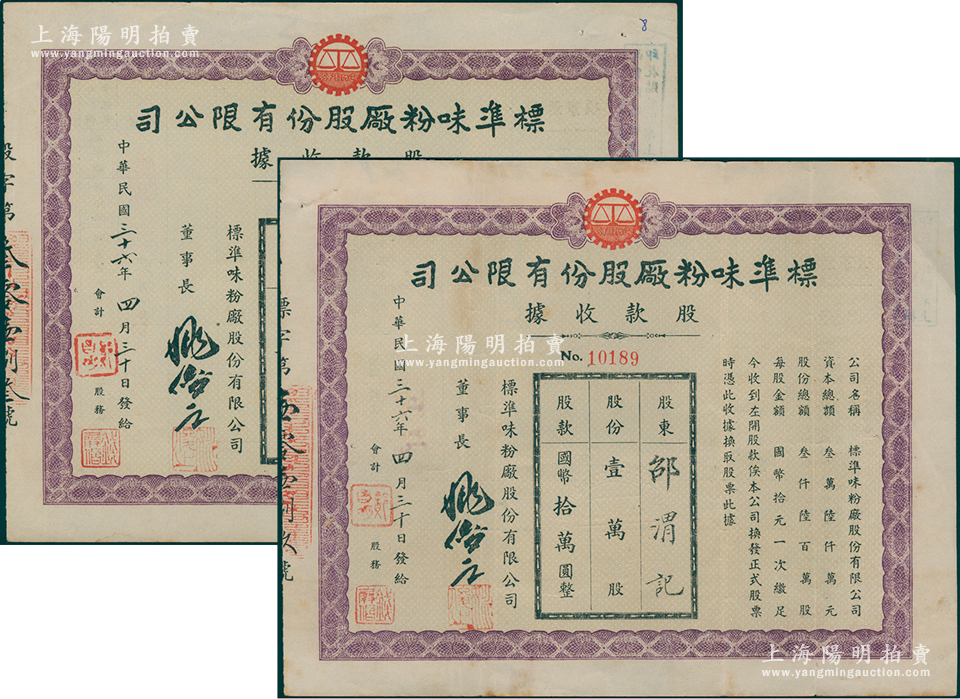 上海陽明拍賣
www.yangmingauction.com
司公限有份股廠粉味準標
據收款股
標準味粉廠股份有限公司
董事長
中華民國三十六年四月三十日發給
會計
股務
股字第
號
司公限有份股廠粉味準標
據收款股
No. 10189
公司名稱 標準味粉廠股份有限公司
資本總額 叁萬陸仟萬元
股份總額 叁仟陸百萬股
每股金額 國幣拾元一次繳足
今收到左開股款俟本公司換發正式股票
時憑此收據換取股票此據
股東 邵渭記
股份 壹萬股
股款 國幣拾萬圓整
標準味粉廠股份有限公司
董事長
中華民國三十六年四月三十日發給
會計
股務
標字第
號
上海陽明拍賣
www.yangmingauction.com
上海陽明拍賣
www.yangmingauction.com